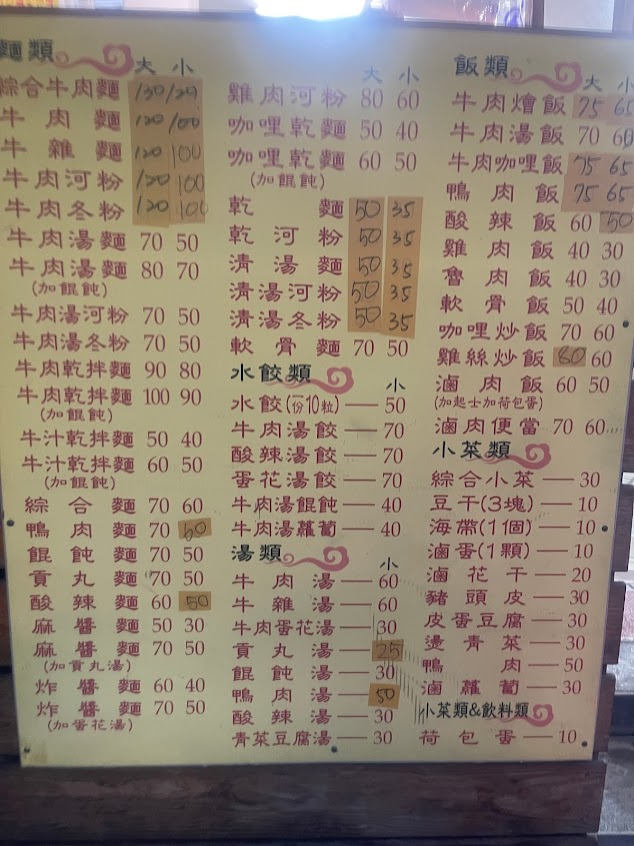 麵類
大 小
綜合牛肉麵 130/120
牛肉麵 120/100
牛雜麵 120 100
牛肉河粉 120 100
牛肉冬粉 120 100
牛肉湯麵 70 50
牛肉湯麵 80 70
(加餛飩)
牛肉湯河粉 70 50
牛肉湯冬粉 70 50
牛肉乾拌麵 90 80
牛肉乾拌麵 100 90
(加餛飩)
牛汁乾拌麵 50 40
牛汁乾拌麵 60 50
(加餛飩)
綜合麵 70 60
鴨肉麵 70 50
餛飩麵 70 50
貢丸麵 70 50
酸辣麵 60 50
麻醬麵 50 30
麻醬麵 70 50
(加貢丸湯)
炸醬麵 60 40
炸醬麵 70 50
(加蛋花湯)
大 小
雞肉河粉 80 60
咖哩乾麵 50 40
咖哩乾麵 60 50
(加餛飩)
乾麵 50 35
乾河粉 50 35
清湯麵 50 35
清湯河粉 50 35
清湯冬粉 50 35
軟骨麵 70 50
水餃類
小
水餃(一份10粒)—50
牛肉湯餃—70
酸辣湯餃—70
蛋花湯餃—70
牛肉湯餛飩—40
牛肉湯蘿蔔—40
湯類
小
牛肉湯—60
牛雜湯—60
牛肉蛋花湯—30
貢丸湯—25
餛飩湯—30
鴨肉湯—50
酸辣湯—30
青菜豆腐湯—30
飯類
大 小
牛肉燴飯 75 65
牛肉湯飯 70 60
牛肉咖哩飯 75 65
鴨肉飯 75 65
酸辣飯 60 50
雞肉飯 40 30
魯肉飯 40 30
軟骨飯 50 40
咖哩炒飯 70 60
雞絲炒飯 80 60
滷肉飯 60 50
(加起士加荷包蛋)
滷肉便當 70 60
小菜類
綜合小菜—30
豆干(3塊)—10
海帶(1個)—10
滷蛋(1顆)—10
滷花干—20
豬頭皮—30
皮蛋豆腐—30
燙青菜—30
鴨肉—50
滷蘿蔔—30
小菜類&飲料類
荷包蛋—10